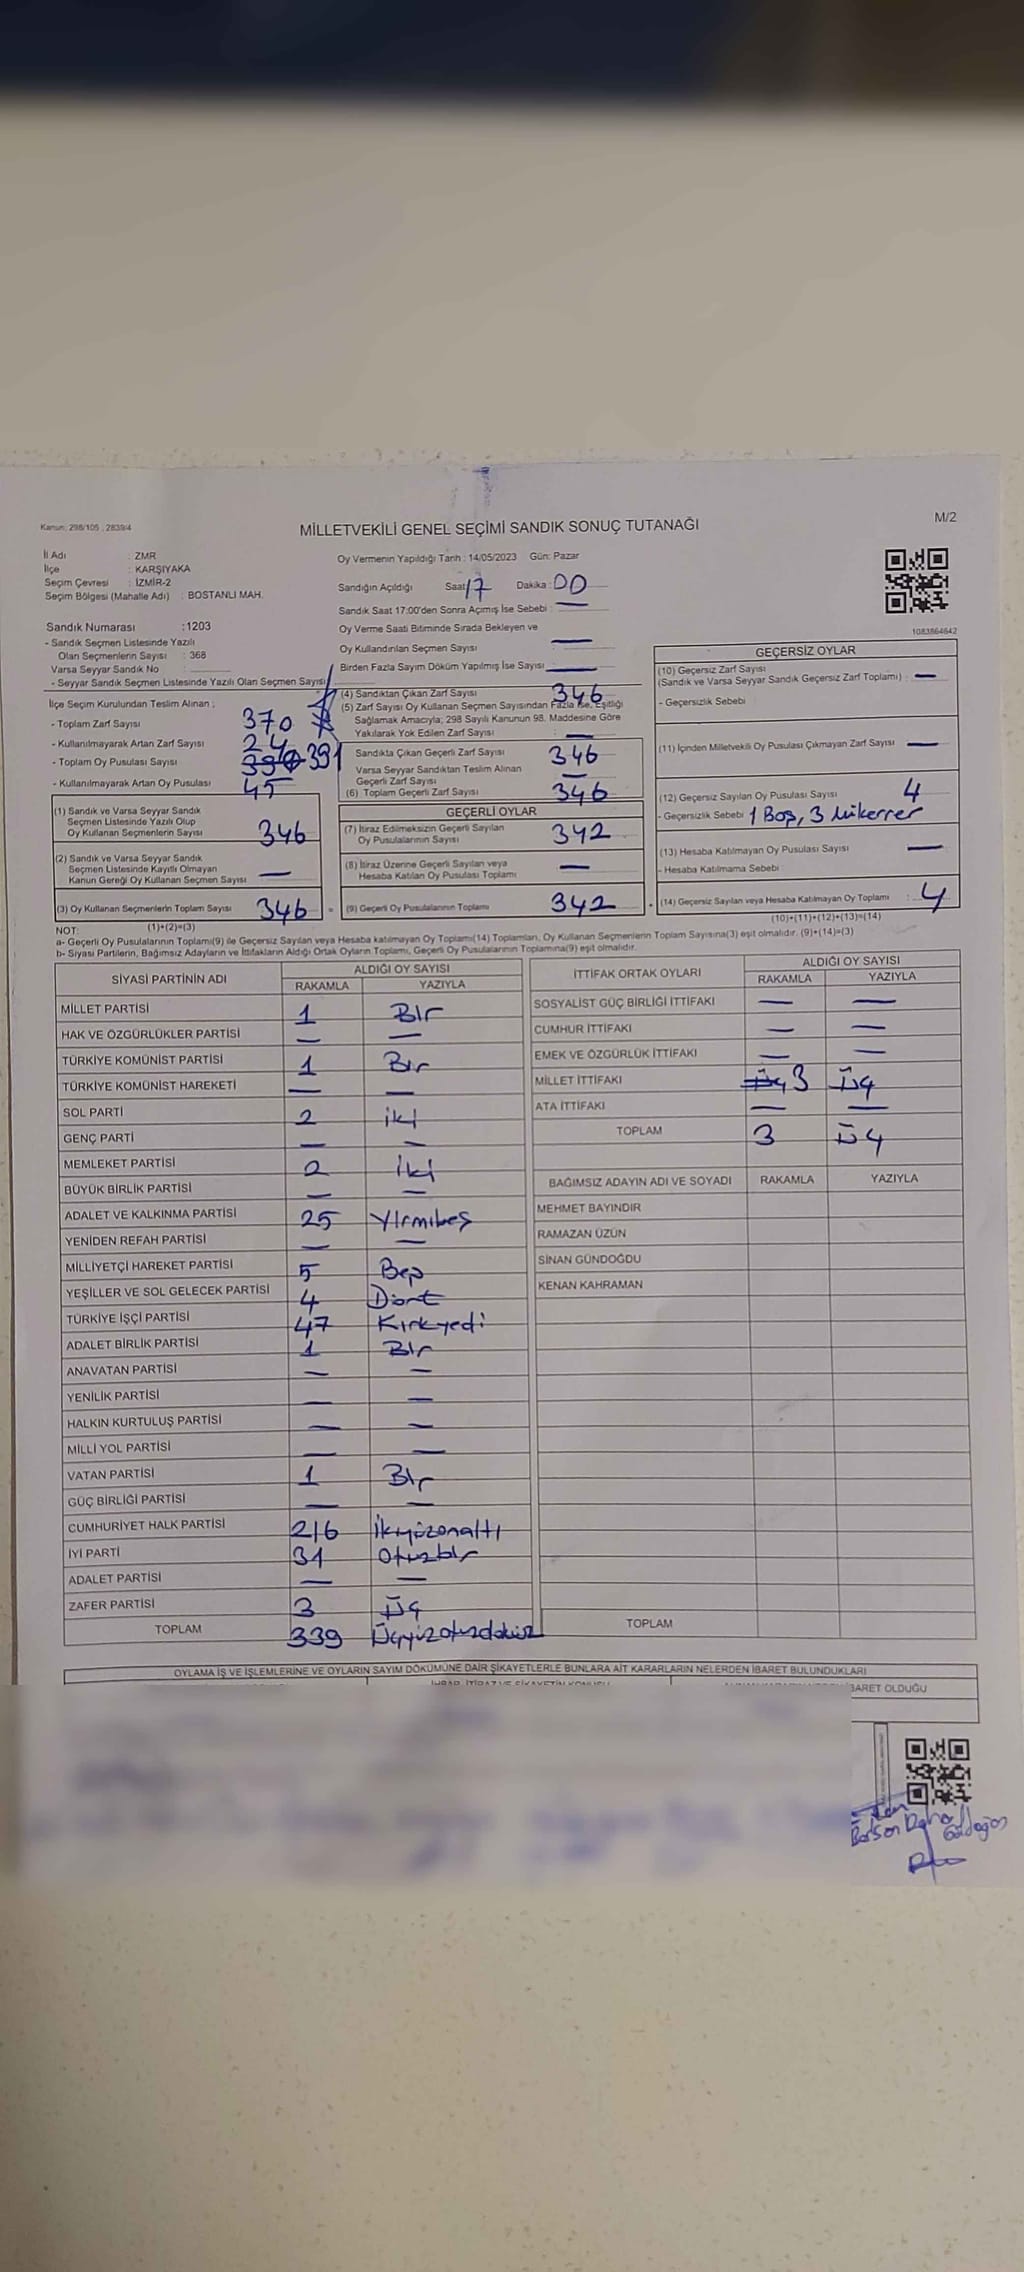 Kanun: 298/105 , 2839/4
MİLLETVEKİLİ GENEL SEÇİMİ SANDIK SONUÇ TUTANAĞI
M/2
İl Adı : ZMR
İlçe : KARŞIYAKA
Seçim Çevresi : İZMİR-2
Seçim Bölgesi (Mahalle Adı) : BOSTANLI MAH.
Oy Vermenin Yapıldığı Tarih : 14/05/2023 Gün: Pazar
Sandığın Açıldığı Saat 17 Dakika : 00
Sandık Saat 17:00'den Sonra Açımış İse Sebebi : —
Oy Verme Saati Bitiminde Sırada Bekleyen ve
Oy Kullandırılan Seçmen Sayısı : —
Birden Fazla Sayım Döküm Yapılmış İse Sayısı : —
1083864642
Sandık Numarası : 1203
- Sandık Seçmen Listesinde Yazılı
Olan Seçmenlerin Sayısı : 368
Varsa Seyyar Sandık No :
- Seyyar Sandık Seçmen Listesinde Yazılı Olan Seçmen Sayısı
İlçe Seçim Kurulundan Teslim Alınan ;
- Toplam Zarf Sayısı 370
- Kullanılmayarak Artan Zarf Sayısı 24
- Toplam Oy Pusulası Sayısı 391
- Kullanılmayarak Artan Oy Pusulası 45
(1) Sandık ve Varsa Seyyar Sandık
Seçmen Listesinde Yazılı Olup
Oy Kullanan Seçmenlerin Sayısı 346
(2) Sandık ve Varsa Seyyar Sandık
Seçmen Listesinde Kayıtlı Olmayan
Kanun Gereği Oy Kullanan Seçmen Sayısı —
(3) Oy Kullanan Seçmenlerin Toplam Sayısı 346
(1)+(2)=(3)
(4) Sandıktan Çıkan Zarf Sayısı 346
(5) Zarf Sayısı Oy Kullanan Seçmen Sayısından Fazla İse, Eşitliği
Sağlamak Amacıyla; 298 Sayılı Kanunun 98. Maddesine Göre
Yakılarak Yok Edilen Zarf Sayısı : —
Sandıkta Çıkan Geçerli Zarf Sayısı 346
Varsa Seyyar Sandıktan Teslim Alınan
Geçerli Zarf Sayısı —
(6) Toplam Geçerli Zarf Sayısı 346
GEÇERLİ OYLAR
(7) İtiraz Edilmeksizin Geçerli Sayılan
Oy Pusulalarının Sayısı 342
(8) İtiraz Üzerine Geçerli Sayılan veya
Hesaba Katılan Oy Pusulası Toplamı —
(9) Geçerli Oy Pusulalarının Toplamı 342
GEÇERSİZ OYLAR
(10) Geçersiz Zarf Sayısı
(Sandık ve Varsa Seyyar Sandık Geçersiz Zarf Toplamı) : —
- Geçersizlik Sebebi
(11) İçinden Milletvekili Oy Pusulası Çıkmayan Zarf Sayısı —
(12) Geçersiz Sayılan Oy Pusulası Sayısı 4
- Geçersizlik Sebebi 1 Boş, 3 Mükerrer
(13) Hesaba Katılmayan Oy Pusulası Sayısı —
- Hesaba Katılmama Sebebi
(14) Geçersiz Sayılan veya Hesaba Katılmayan Oy Toplamı : 4
(10)+(11)+(12)+(13)=(14)
NOT:
a- Geçerli Oy Pusulalarının Toplamı(9) ile Geçersiz Sayılan veya Hesaba katılmayan Oy Toplamı(14) Toplamları, Oy Kullanan Seçmenlerin Toplam Sayısına(3) eşit olmalıdır. (9)+(14)=(3)
b- Siyasi Partilerin, Bağımsız Adayların ve İttifakların Aldığı Ortak Oyların Toplamı, Geçerli Oy Pusulalarının Toplamına(9) eşit olmalıdır.
SİYASİ PARTİNİN ADI ALDIĞI OY SAYISI
RAKAMLA YAZIYLA
MİLLET PARTİSİ 1 Bir
HAK VE ÖZGÜRLÜKLER PARTİSİ — —
TÜRKİYE KOMÜNİST PARTİSİ 1 Bir
TÜRKİYE KOMÜNİST HAREKETİ — —
SOL PARTİ 2 iki
GENÇ PARTİ — —
MEMLEKET PARTİSİ 2 İki
BÜYÜK BİRLİK PARTİSİ — —
ADALET VE KALKINMA PARTİSİ 25 Yirmibeş
YENİDEN REFAH PARTİSİ — —
MİLLİYETÇİ HAREKET PARTİSİ 5 Beş
YEŞİLLER VE SOL GELECEK PARTİSİ 4 Dört
TÜRKİYE İŞÇİ PARTİSİ 47 Kırkyedi
ADALET BİRLİK PARTİSİ 1 Bir
ANAVATAN PARTİSİ — —
YENİLİK PARTİSİ — —
HALKIN KURTULUŞ PARTİSİ — —
MİLLİ YOL PARTİSİ — —
VATAN PARTİSİ 1 Bir
GÜÇ BİRLİĞİ PARTİSİ — —
CUMHURİYET HALK PARTİSİ 216 İkiyüzonaltı
İYİ PARTİ 31 Otuzbir
ADALET PARTİSİ — —
ZAFER PARTİSİ 3 Üç
TOPLAM 339 Üçyüzotuzdokuz
İTTİFAK ORTAK OYLARI ALDIĞI OY SAYISI
RAKAMLA YAZIYLA
SOSYALİST GÜÇ BİRLİĞİ İTTİFAKI — —
CUMHUR İTTİFAKI — —
EMEK VE ÖZGÜRLÜK İTTİFAKI — —
MİLLET İTTİFAKI 3 Üç
ATA İTTİFAKI — —
TOPLAM 3 Üç
BAĞIMSIZ ADAYIN ADI VE SOYADI RAKAMLA YAZIYLA
MEHMET BAYINDIR
RAMAZAN ÜZÜN
SİNAN GÜNDOĞDU
KENAN KAHRAMAN
TOPLAM
OYLAMA İŞ VE İŞLEMLERİNE VE OYLARIN SAYIM DÖKÜMÜNE DAİR ŞİKAYETLERLE BUNLARA AİT KARARLARIN NELERDEN İBARET BULUNDUKLARI
İHBAR, İTİRAZ VE ŞİKAYETİN KONUSU
İBARET OLDUĞU